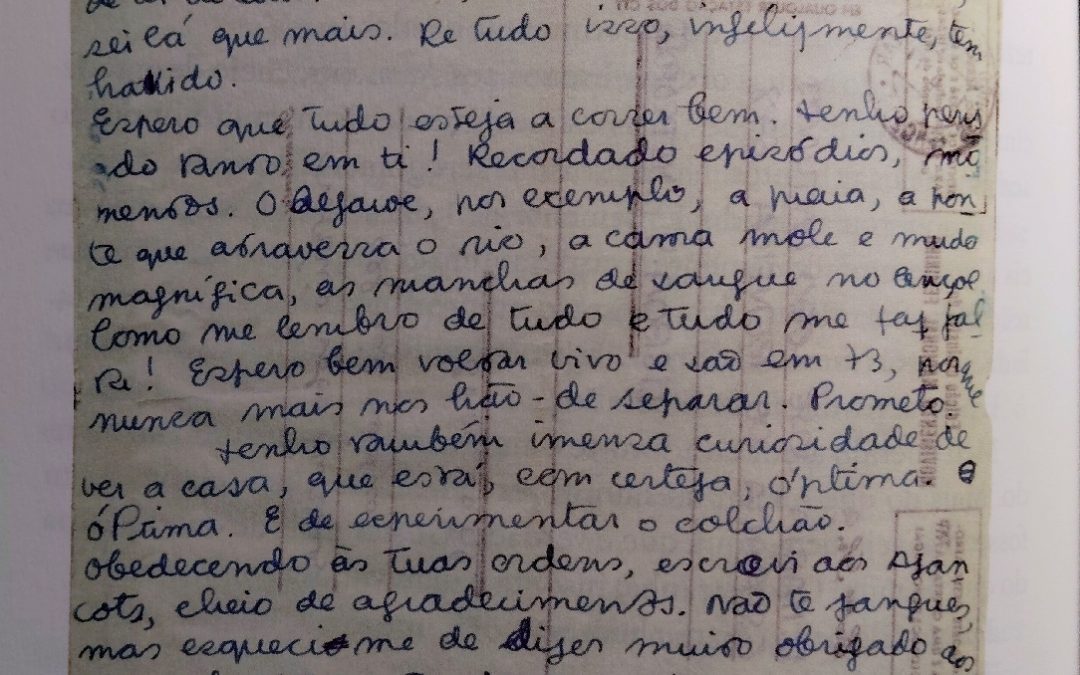 sei lá que mais. De tudo isso, infelizmente, tem
havido.
Espero que tudo esteja a correr bem. Tenho pen
sado tanto em ti! Recordado episódios, mo
mentos. O Algarve, por exemplo, a praia, a pon
te que atravessa o rio, a cama mole e
magnífica, as manchas de sangue no lençol
Como me lembro de tudo e tudo me faz fal
ta! Espero bem voltar vivo e são em 73, porque
nunca mais nos hão-de separar. Prometo
Tenho também imensa curiosidade de
ver a casa, que está, com certeza, óptima.
óptima. E de experimentar o colchão.
Obedecendo às tuas ordens, escrevi aos
cots, cheio de agradecimentos. Não te zangues,
mas esqueci-me de dizer muito obrigado aos